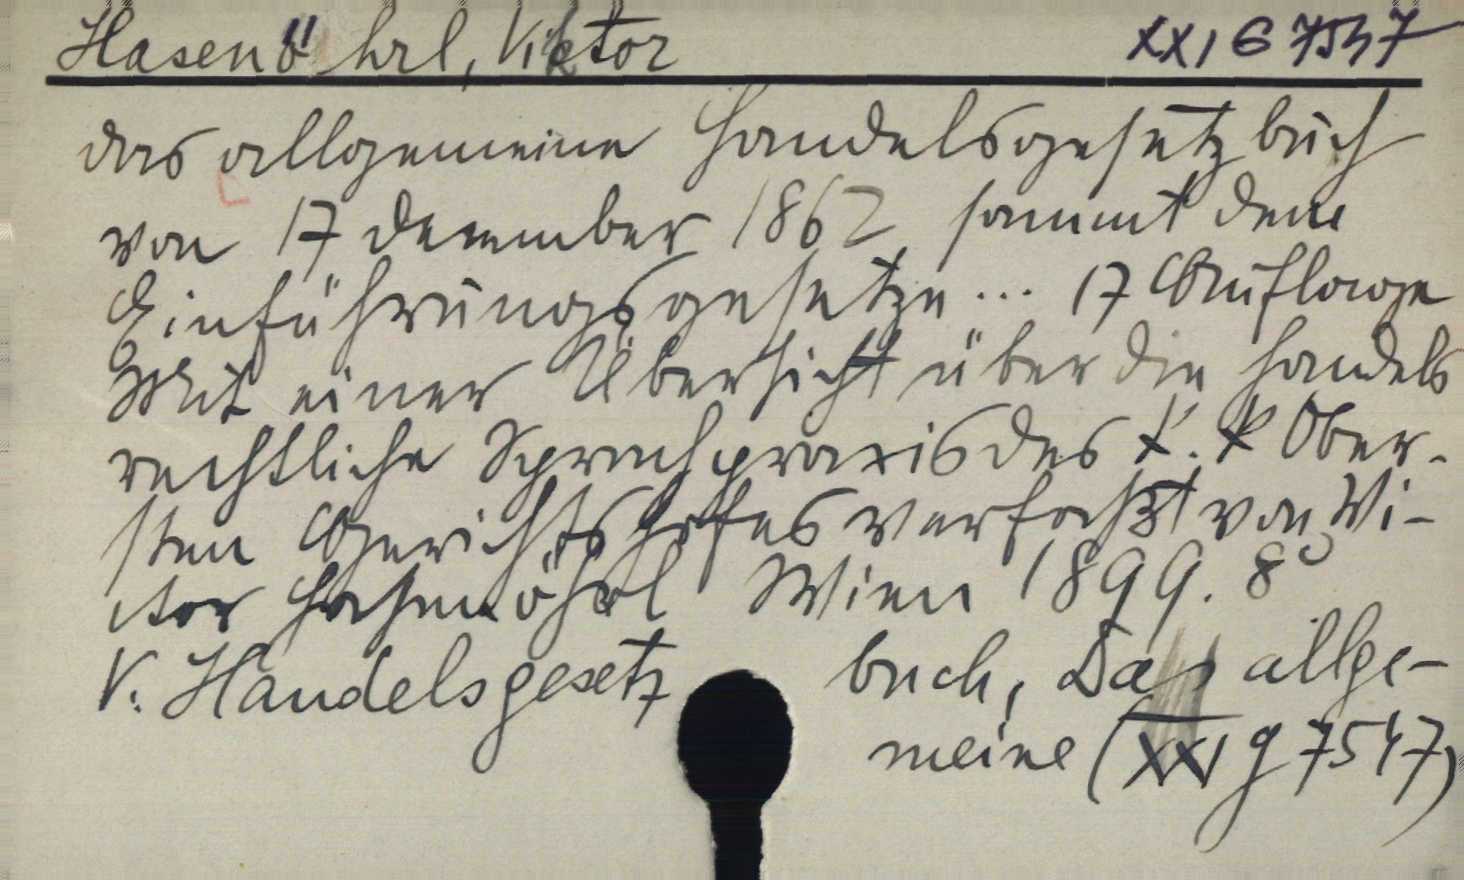 Hasenöhrl, Viktor XXI G 7547
das allgemeine Handelsgesetzbuch
von 17 December 1862 sammt dem
Einführungsgesetze... 17 Auflage
Mit einer Übersicht über die handels
rechtliche Spruchpraxis des k. k Ober-
sten Gerichtshofes verfasst von Vi-
ktor Hasenöhrl Wien 1899. 8°
V. Handelsgesetzbuch, Das allge-
meine (XXI g 7547)